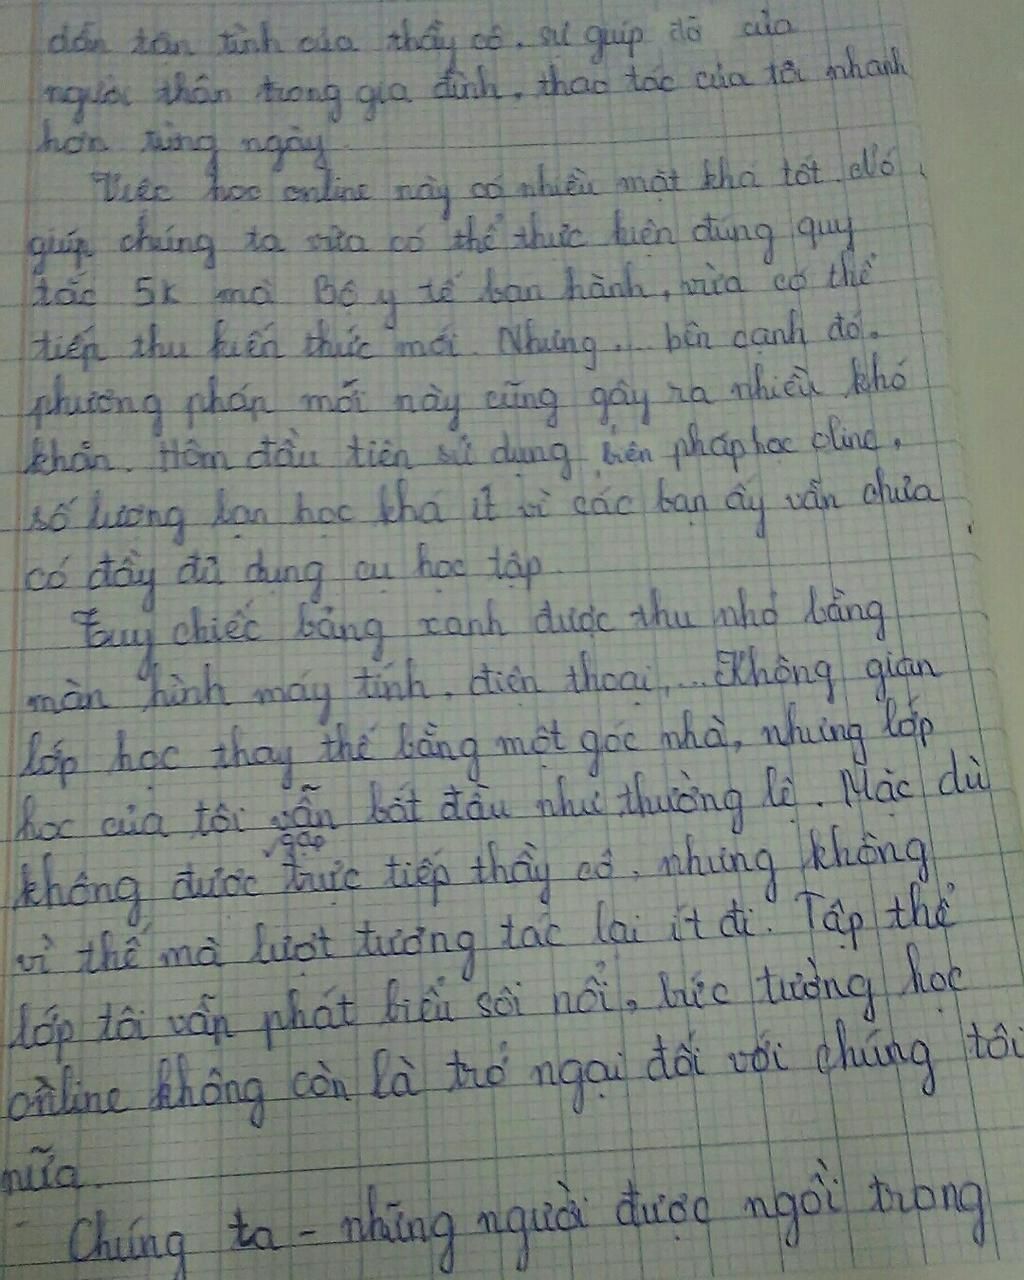 dẫn tận tình của thầy cô, sự giúp đỡ của
người thân trong gia đình, thao tác của tôi nhanh
hơn từng ngày.
Việc học online này có nhiều mặt khá tốt. Nó
giúp chúng ta vừa có thể thực hiện đúng quy
tắc 5K mà Bộ y tế ban hành, vừa có thể
tiếp thu kiến thức mới. Nhưng... bên cạnh đó,
phương pháp mới này cũng gây ra nhiều khó
khăn. Hôm đầu tiên sử dụng biện pháp học oline,
số lượng bạn học khá ít vì các bạn ấy vẫn chưa
có đầy đủ dụng cụ học tập.
Tuy chiếc bảng xanh được thu nhỏ bằng
màn hình máy tính, điện thoại,... Không gian
lớp học thay thế bằng một góc nhà, nhưng lớp
học của tôi vẫn bắt đầu như thường lệ. Mặc dù
gặp
không được trực tiếp thầy cô, nhưng không
vì thế mà lượt tương tác lại ít đi. Tập thể
lớp tôi vẫn phát biểu sôi nổi, bức tường học
online không còn là trở ngại đối với chúng tôi
nữa.
Chúng ta - những người được ngồi trong